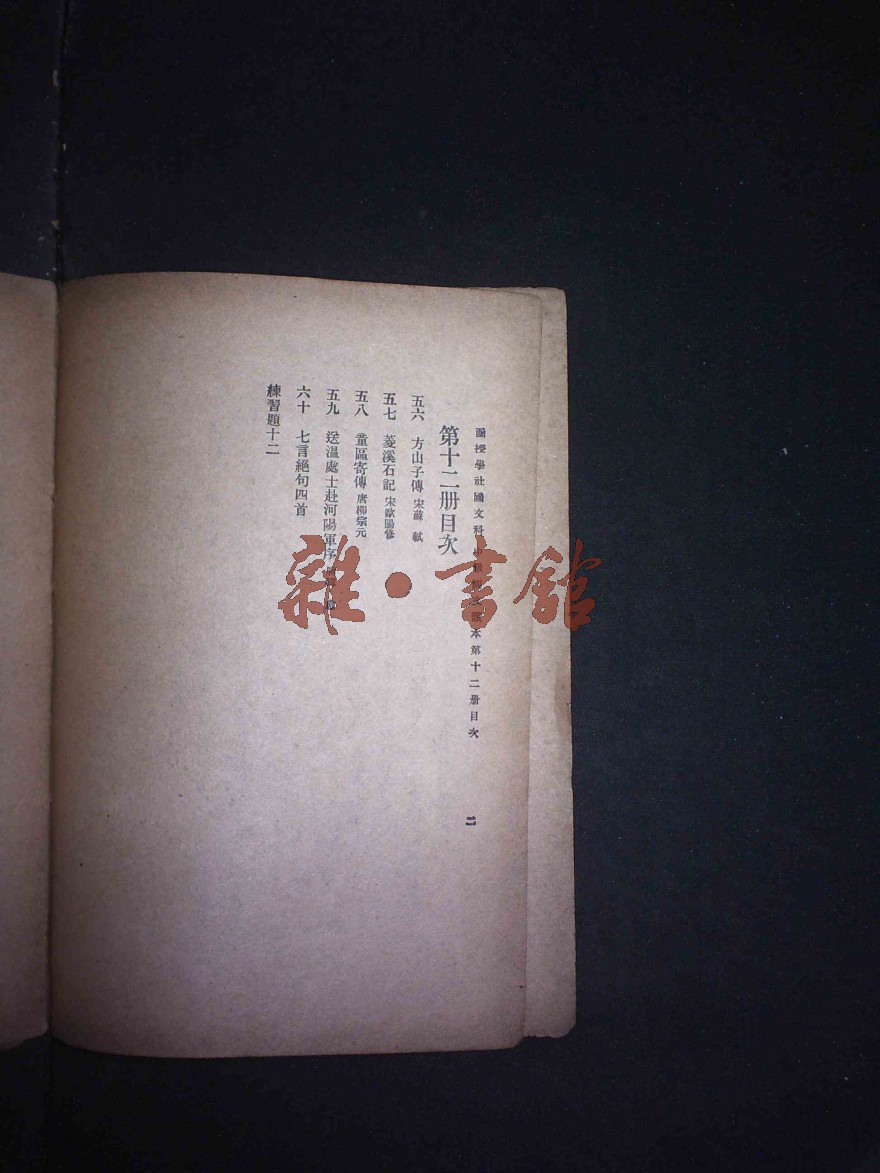 函授學社國文科
本第十二册目次
二
第十二册目次
五六 方山子傳 宋蘇 軾
五七 菱溪石記 宋歐陽修
五八 童區寄傳 唐柳宗元
五九 送溫處士赴河陽軍序
六十 七言絕句四首
練習題十二
雜·書館